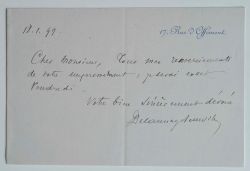 18.1.99
17, Rue d'Offémont
Cher Monsieur, Tous mes remerciements
de votre empressement, je serai exact
Vendredi
Votre bien sincèrement dévoué